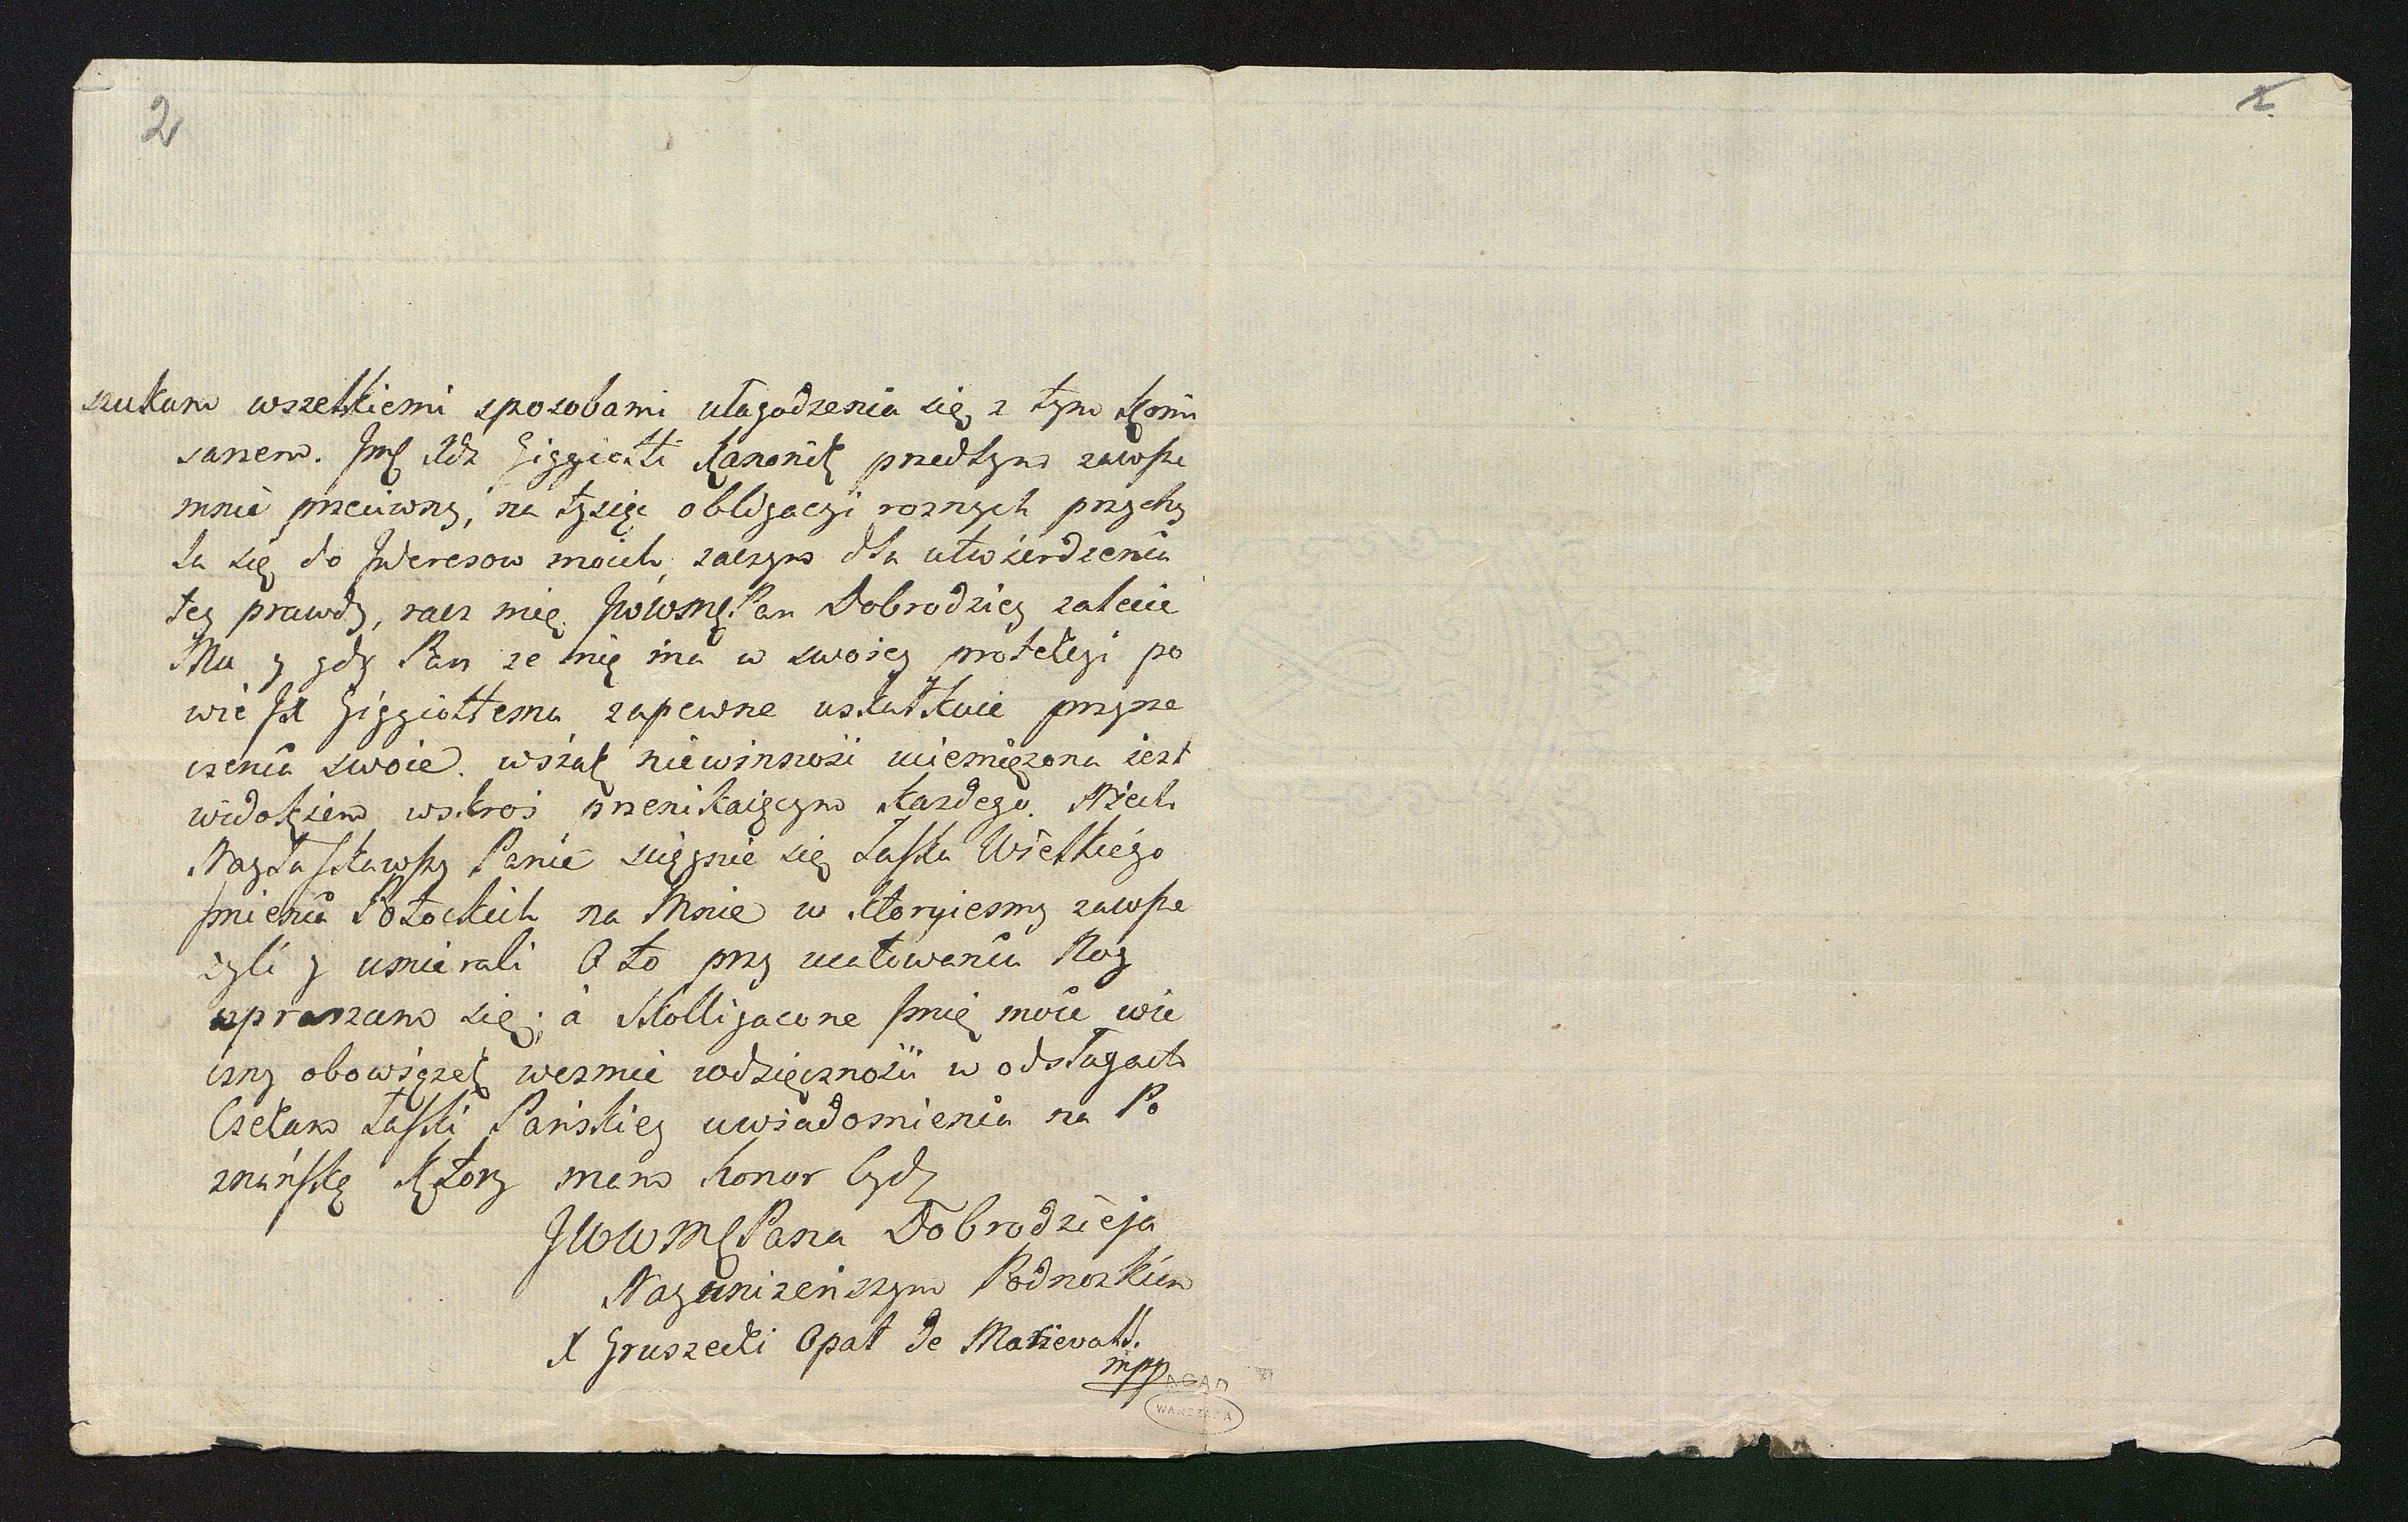 2
szukam wszelkiemi sposobami ułagodzenia się z tym Komi
sarzem. Jmć Xdz Giggiotti Kanonik przedtym zawsze
mnie przeciwny, na tysiąc obligacyi roznych przychy
la się do Jnteresow moich, zaczym dla utwierdzenia
tey prawdy, racz mię JWWMć Pan Dobrodziey zalecić
Mu y gdy Pan ze mię ma w swoiey protekcyi po
wie JX Giggiottemu zapewne uskutkuie przyrze
czenia swoie. wszak niewinność uciemiężona iest
widokiem wskroś przenikaiącym każdego. Niech
Nayłaskawszy Panie sciągnie się łaska Wielkiego
Jmienia Potockich na Mnie w ktorymesmy zawsze
żyli y umierali O to przy ucałowaniu Nog
upraszam się; a Skolligacone Jmię moie wie
czny obowiązek wezmie wdzięczności w odsługach
Czekam łaski Pańskiey uwiadomienia na Po
znańską Ktory mam honor bydź
JWWMć Pana Dobrodzieja
Nayunizeńszym Podnozkiem
X Gruszecki Opat de
mpp
AGAD
WARSZAWA